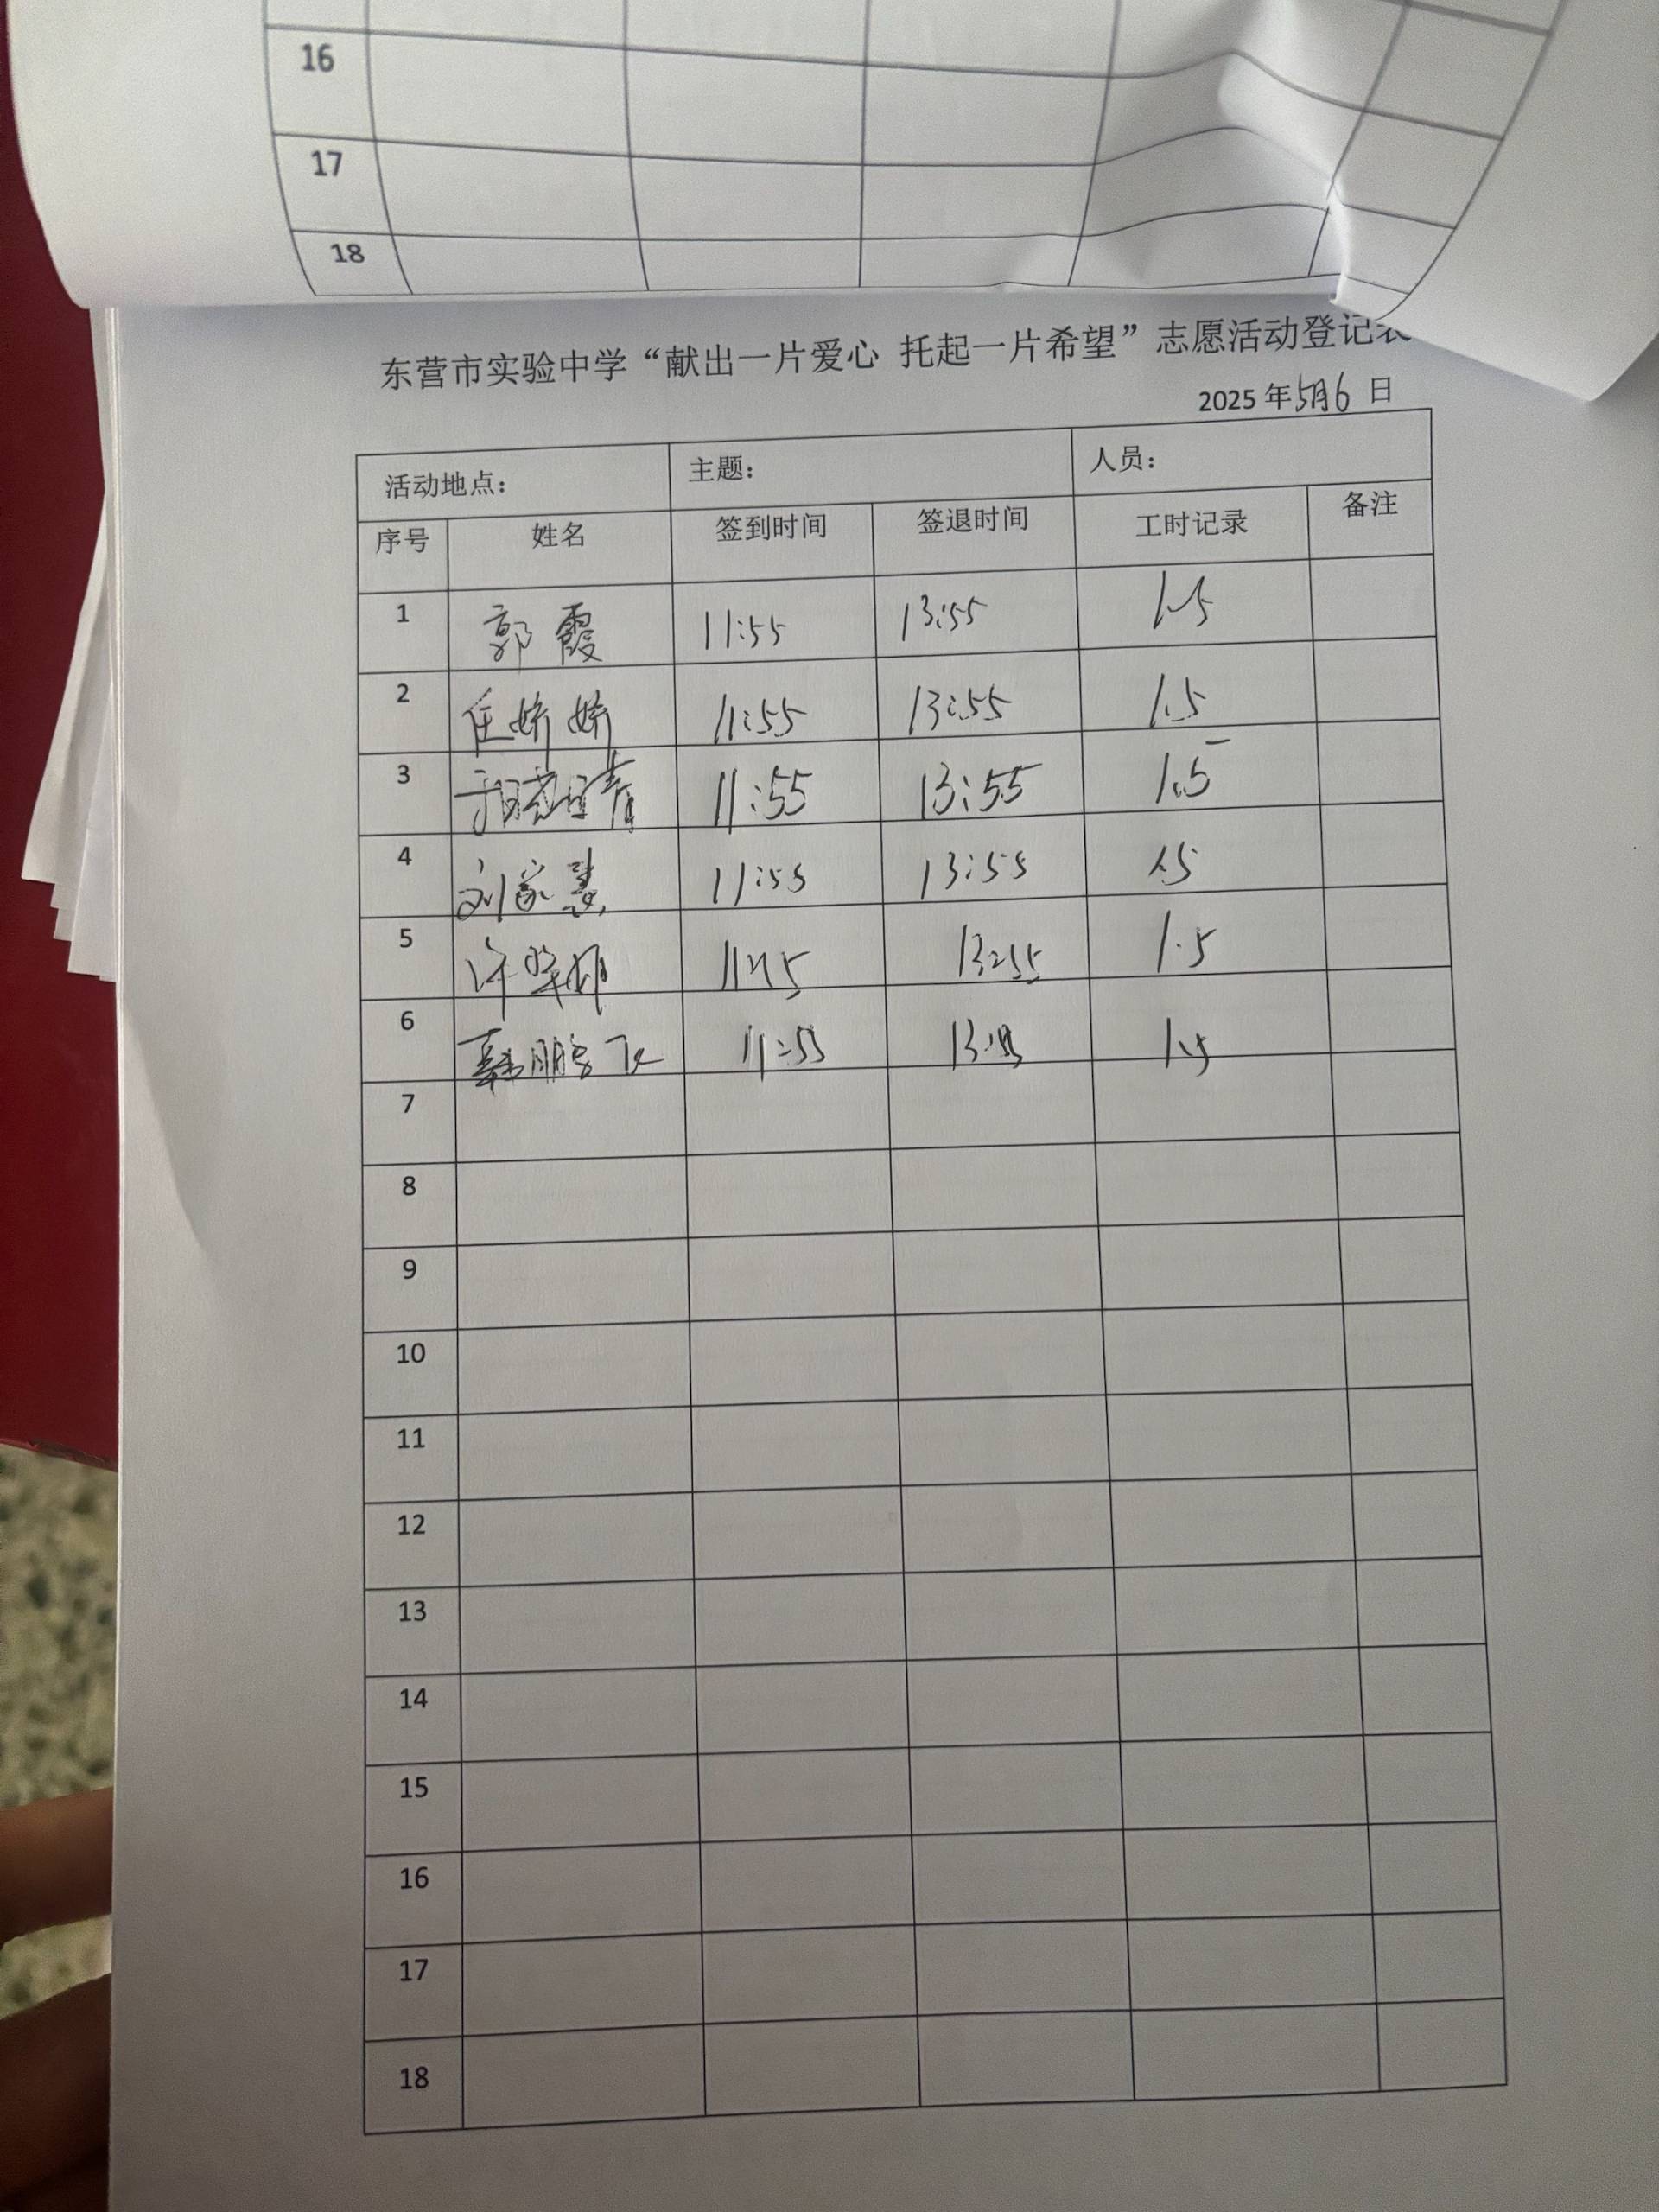 16
17
18
东营市实验中学“献出一片爱心 托起一片希望”志愿活动登记表
2025 年5月6 日
活动地点： 主题： 人员：
序号 姓名 签到时间 签退时间 工时记录 备注
1 郭霞 11:55 13:55 1.5
2 任娇娇 11:55 13:55 1.5
3 11:55 13:55 1.5
4 刘家慧 11:55 13:55 1.5
5 许 13:55 1.5
6 韩鹏飞 11:55 1.5
7
8
9
10
11
12
13
14
15
16
17
18